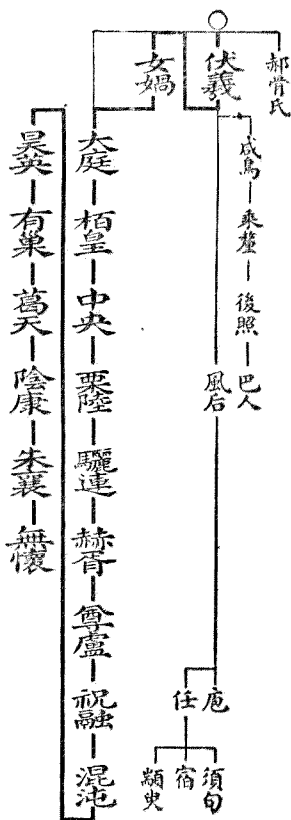 郝骨氏
伏羲
女媧
咸鳥
乘釐
後照
巴人
風后
庖
任
須句
宿
顓臾
大庭
栢皇
中央
栗陸
驪連
赫胥
尊盧
祝融
混沌
昊英
有巢
葛天
陰康
朱襄
無懷